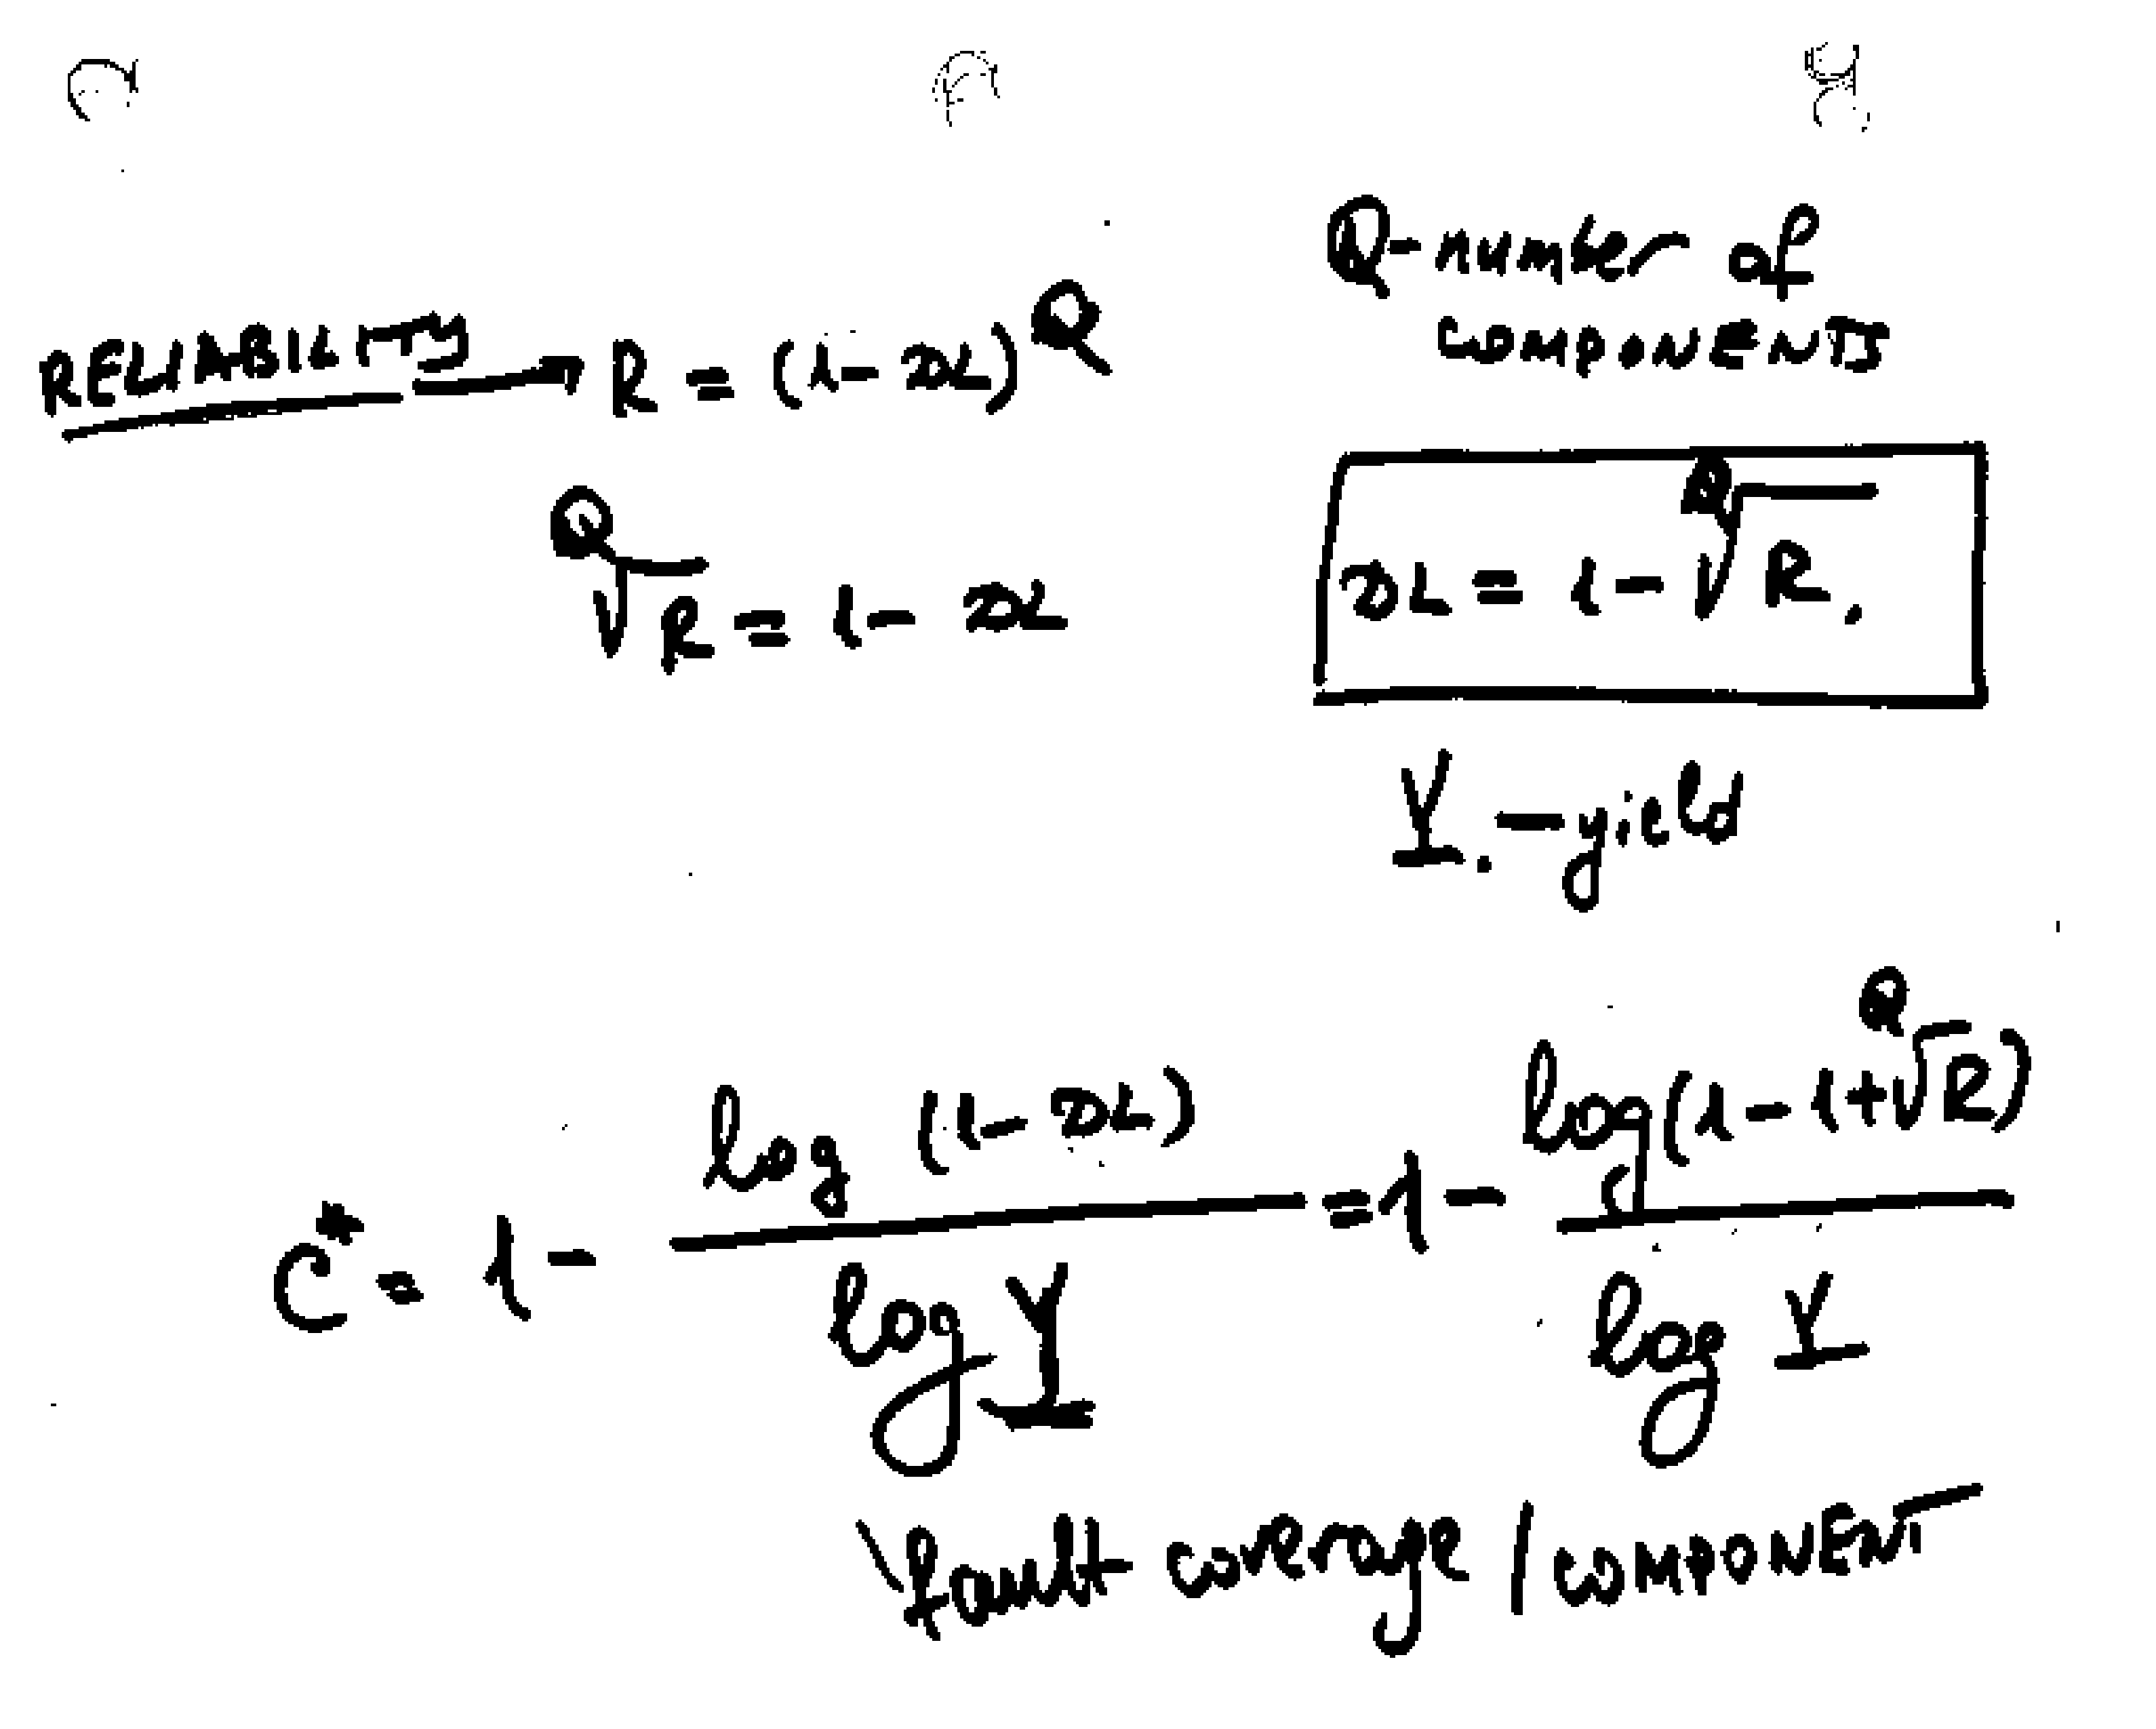 Q-number of
COMPONENTS
RELIABILITY → R = (1-DL)^Q
Q√R = 1- DL
DL = 1- Q√R.
Y.-yield
C* = 1 - log (1-DL) / log Y = 1 - log(1-1+Q√R) / log Y
\fault coverage / COMPONENT